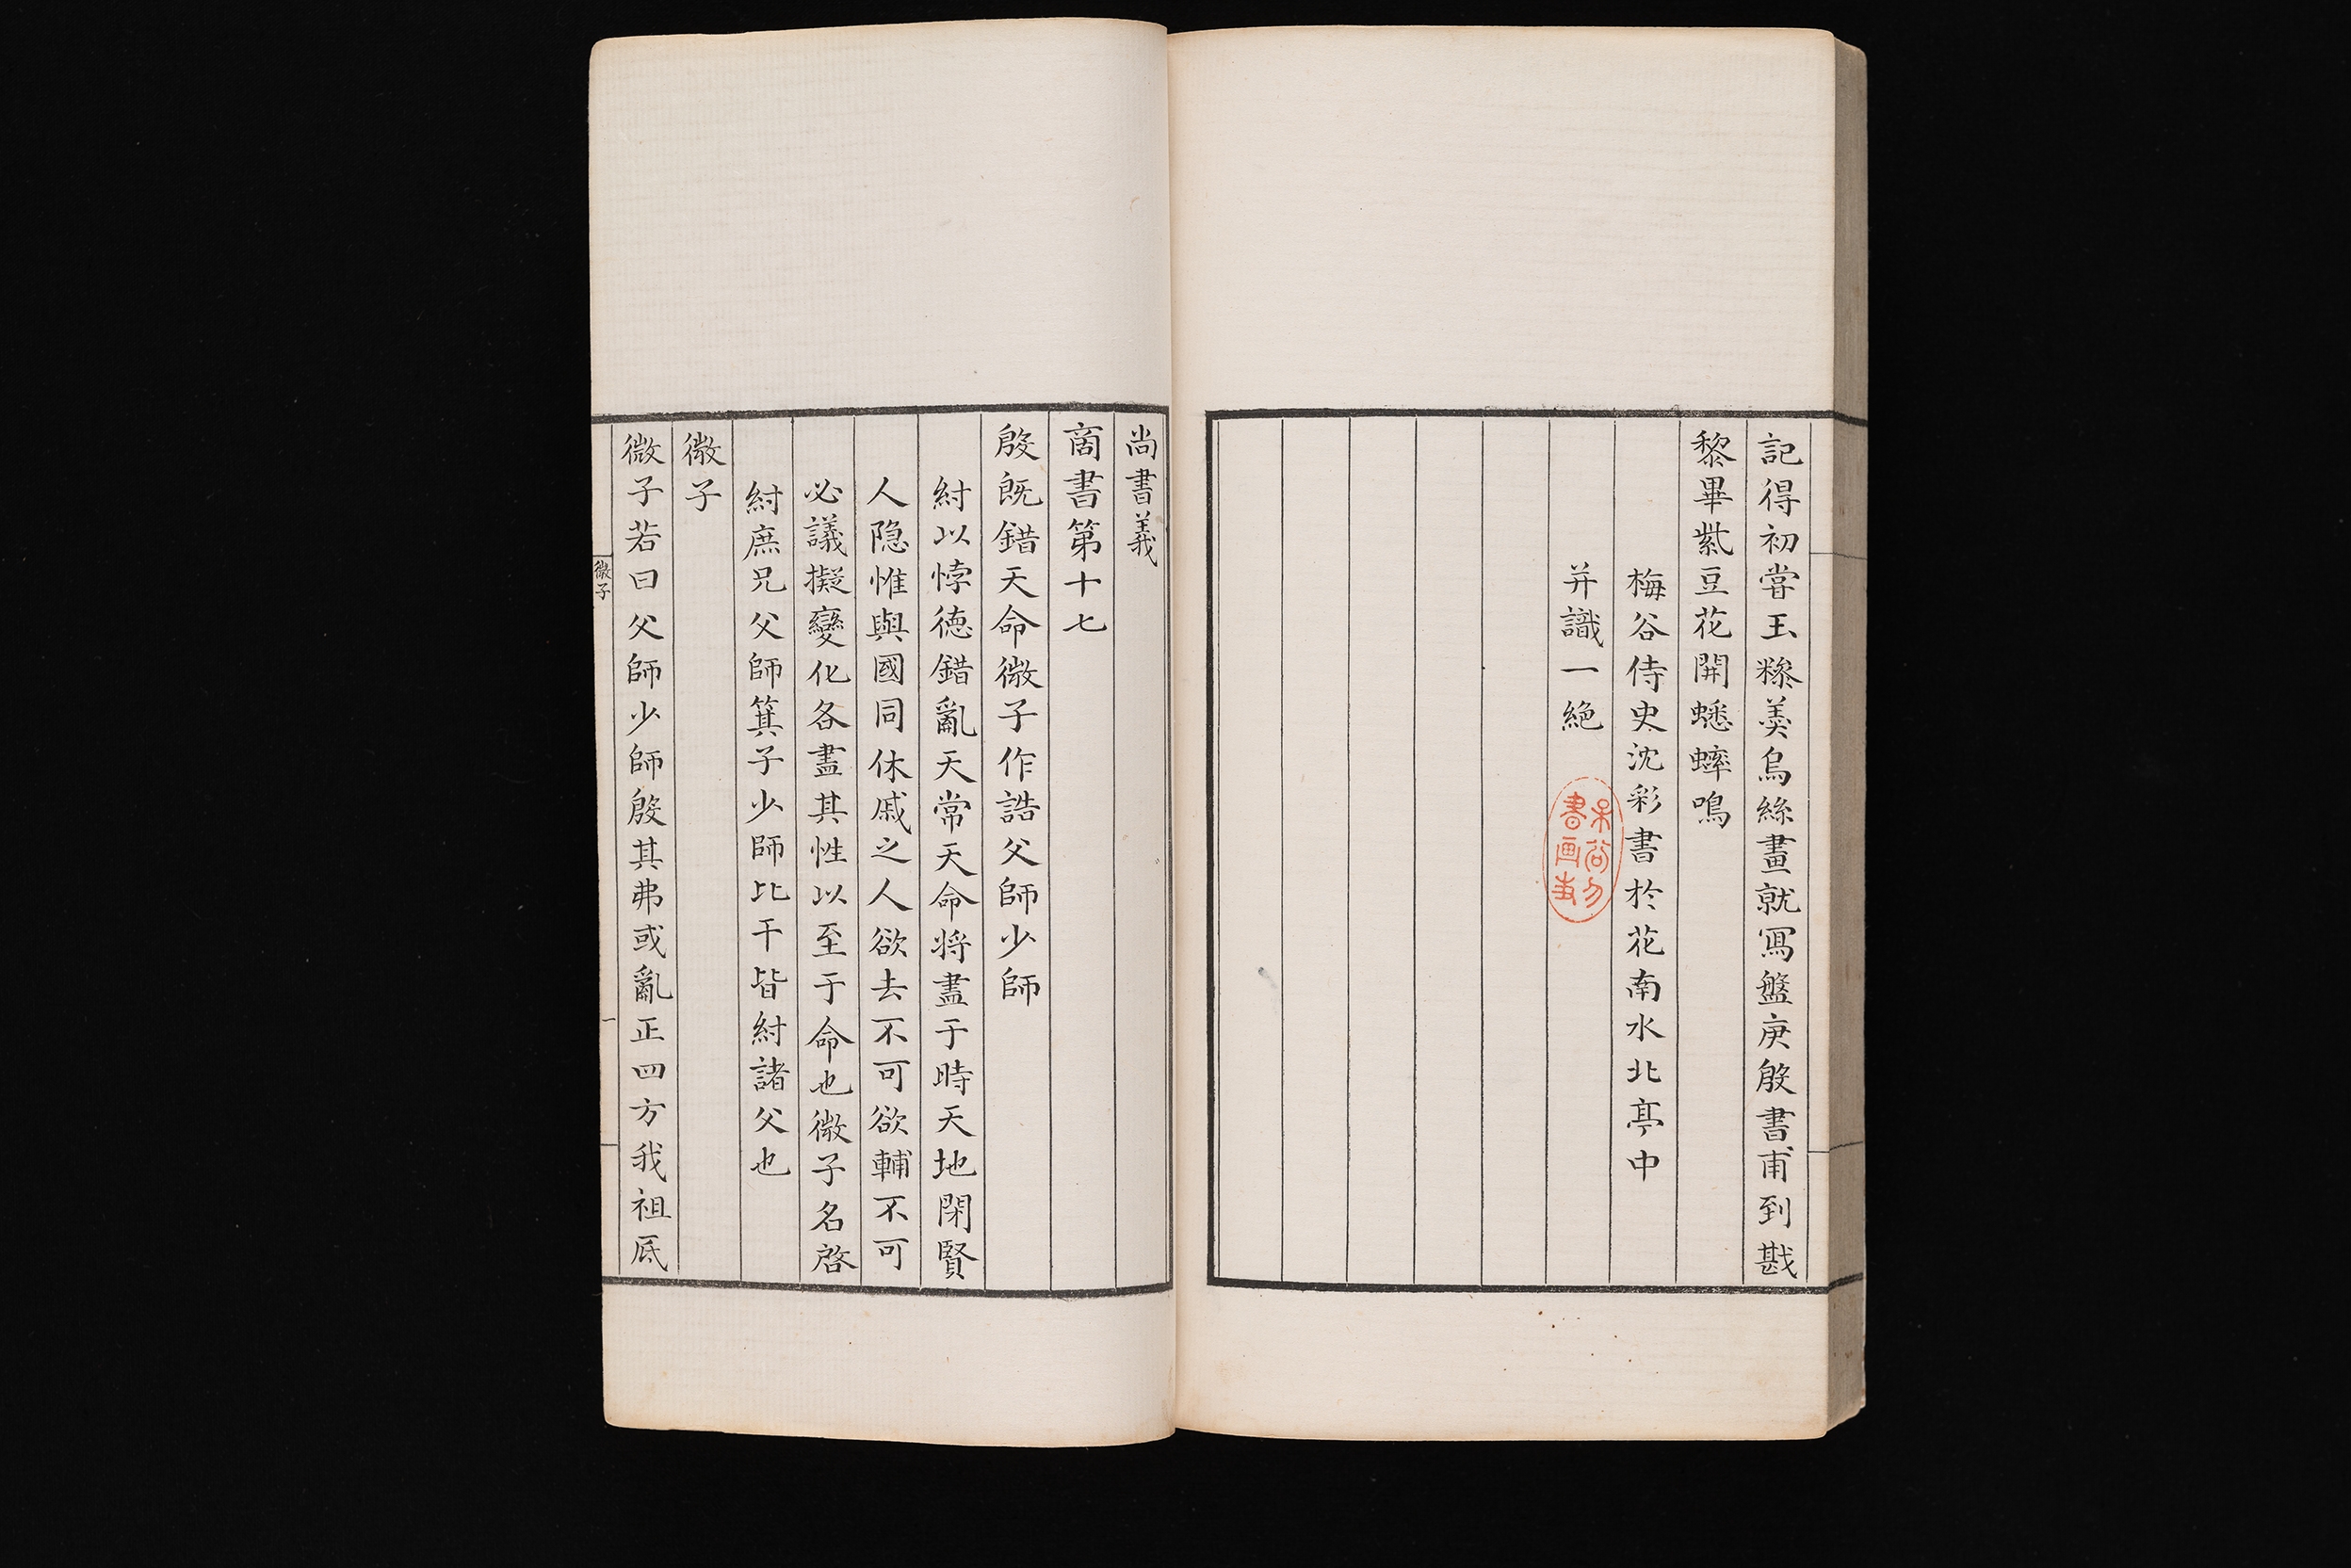 記得初甞玉糝羹烏絲畫就寫盤庚殷書甫到戡
黎畢紫豆花開蟋蟀鳴
梅谷侍史沈彩書於花南水北亭中
并識一絶
尚書義
商書第十七
殷旣錯天命微子作誥父師少師
紂以悖德錯亂天常天命將盡于時天地閑賢
人隐惟與國同休戚之人欲去不可欲輔不可
必議擬變化各盡其性以至于命也微子名啓
紂庶兄父師箕子少師比干皆紂諸父也
微子
微子若曰父師少師殷其弗或亂正四方我祖厎
微子
一